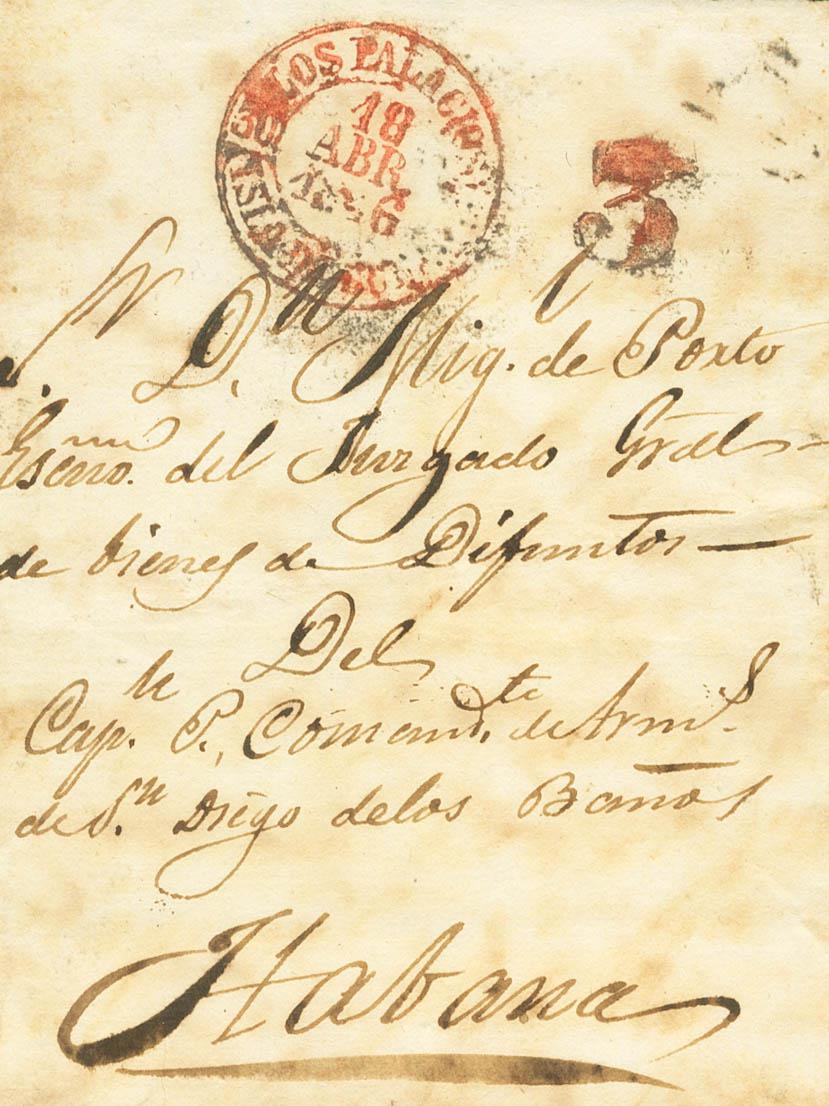 LOS PALACIOS
18
ABR
Sr. Dn. Mig. de Porto
Escno. del Juzgado Gral
de bienes de Difuntos
Del
Capn. P., Comandte. de Arms.
de Sn. Diego de los Baños
Habana